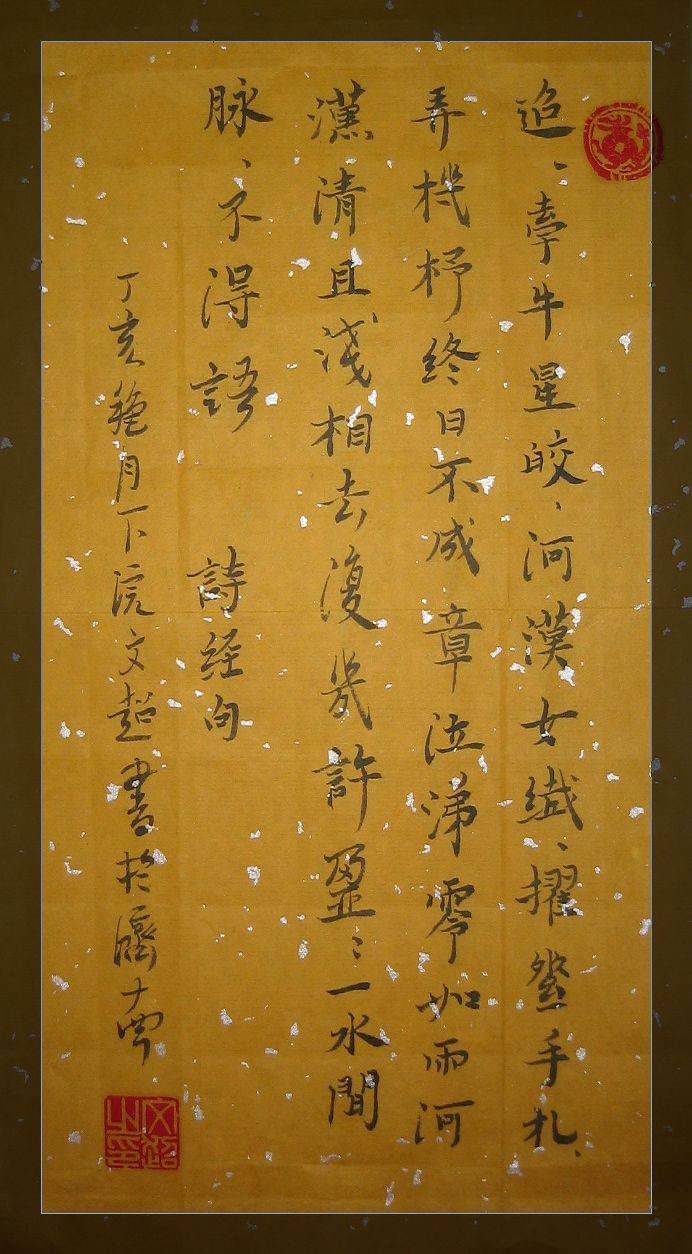 迢、牽牛星皎、河漢女纖、擢素手札、
弄機杼終日不成章泣涕零如雨河
漢清且淺相去復幾許盈、一水間
脉、不得語 詩經句
丁亥艷月下浣文超書於
文超之印